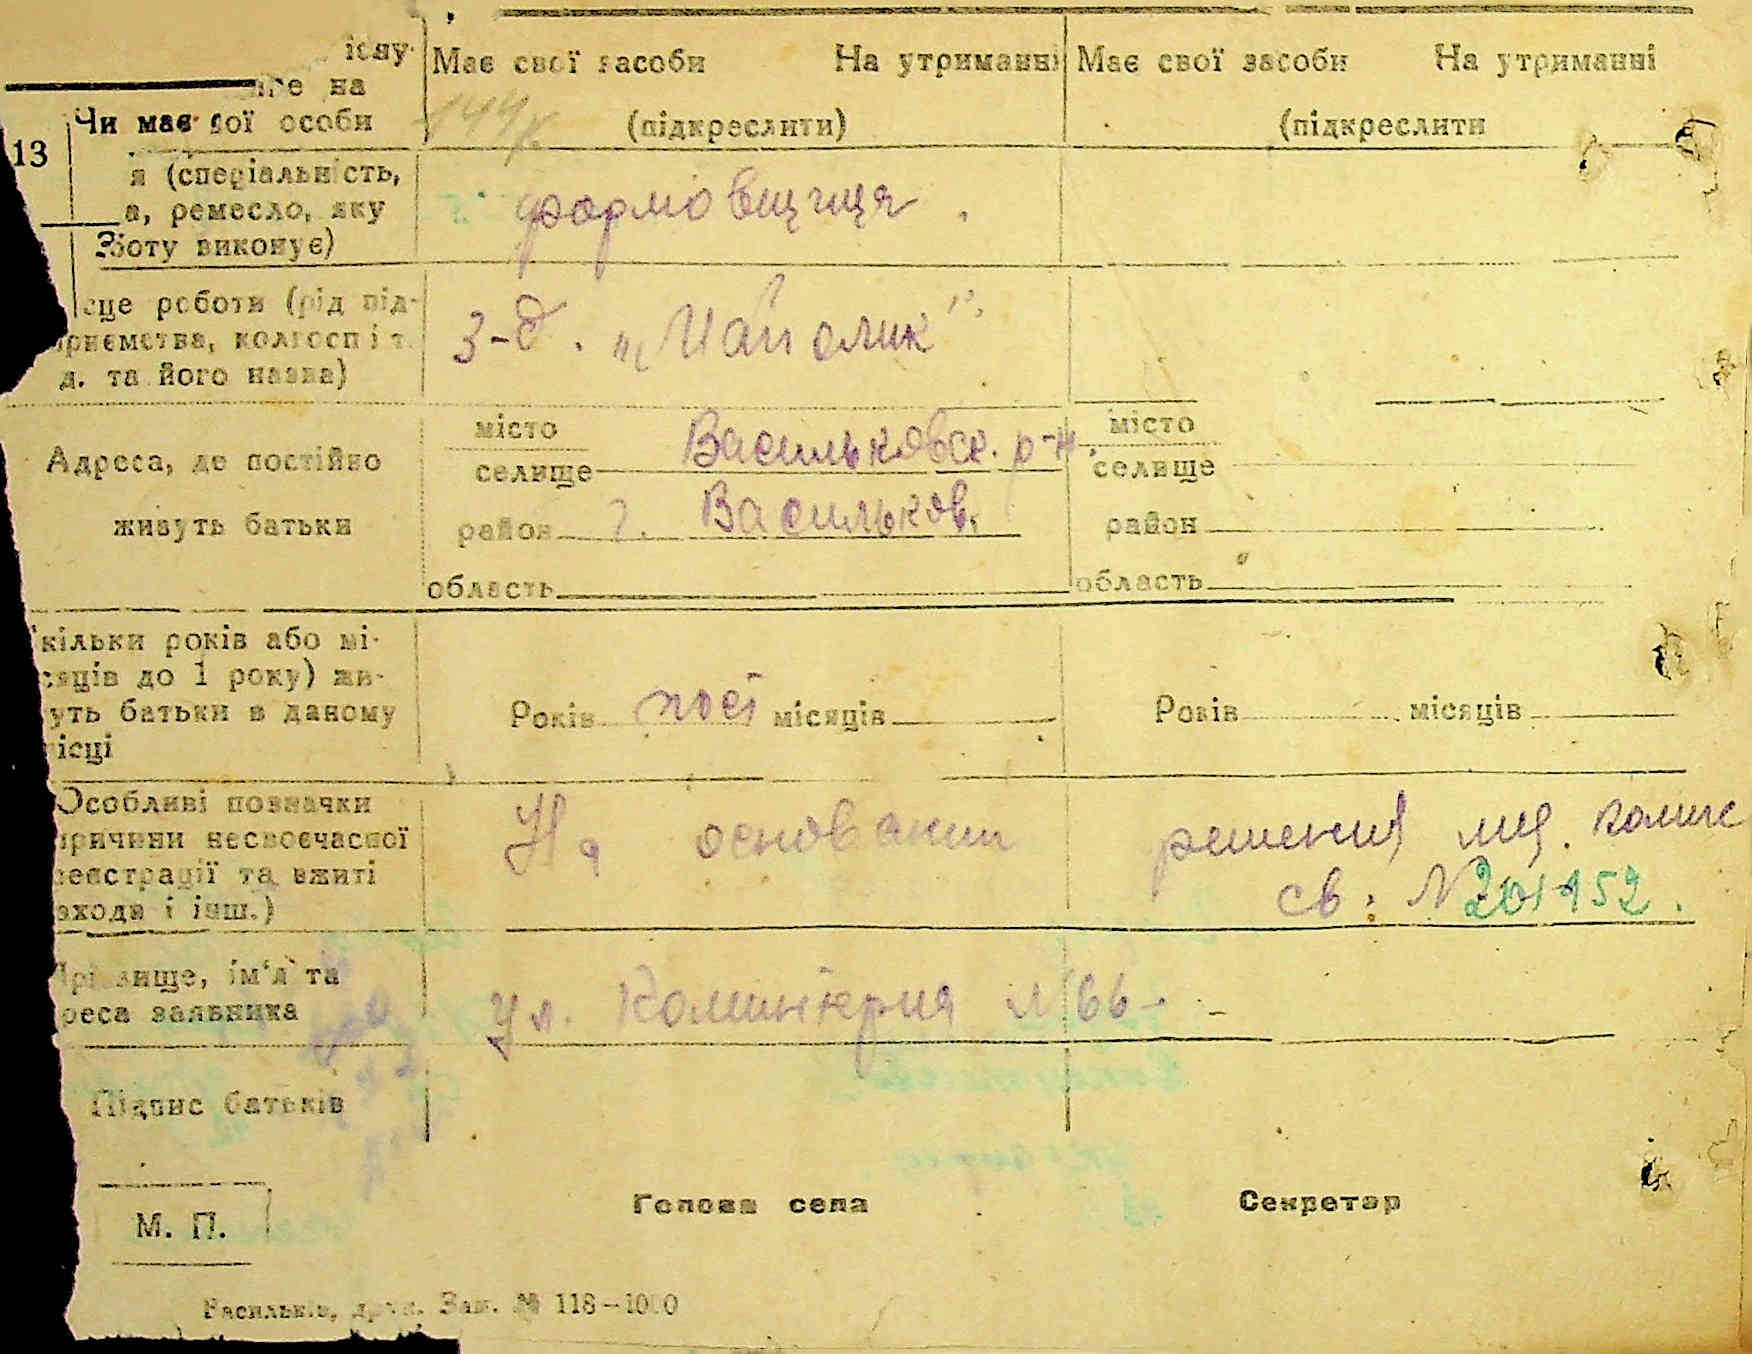 існу-
на
Має свої засоби На утриманні Має свої засоби На утриманні
Чи має свої особи
(підкреслити) (підкреслити
13
я (спеціальність,
а, ремесло, яку
боту виконує)
формовщиця
сце роботи (рід під-
приємства, колгосп і т.
д. та його назва)
З-д. „Майолик"
Адреса, де постійно
живуть батьки
місто
селище
Васильковск. р-н.
район г. Васильков.
область
місто
селище
район
область
кільки років або мі-
сяців до 1 року) жи-
уть батьки в даному
місці
Років пост місяців Років місяців
Особливі позначки
причини несвоєчасної
реєстрації та вжиті
заходи і інш.)
На основании решения мед. комис
св. № 201452.
Прізвище, ім'я та
реса заявника
Ул. Коминтерна № 66
Підпис батьків
М. П.
Голова села Секретар
Васильків, друк. Зам. № 118—1000